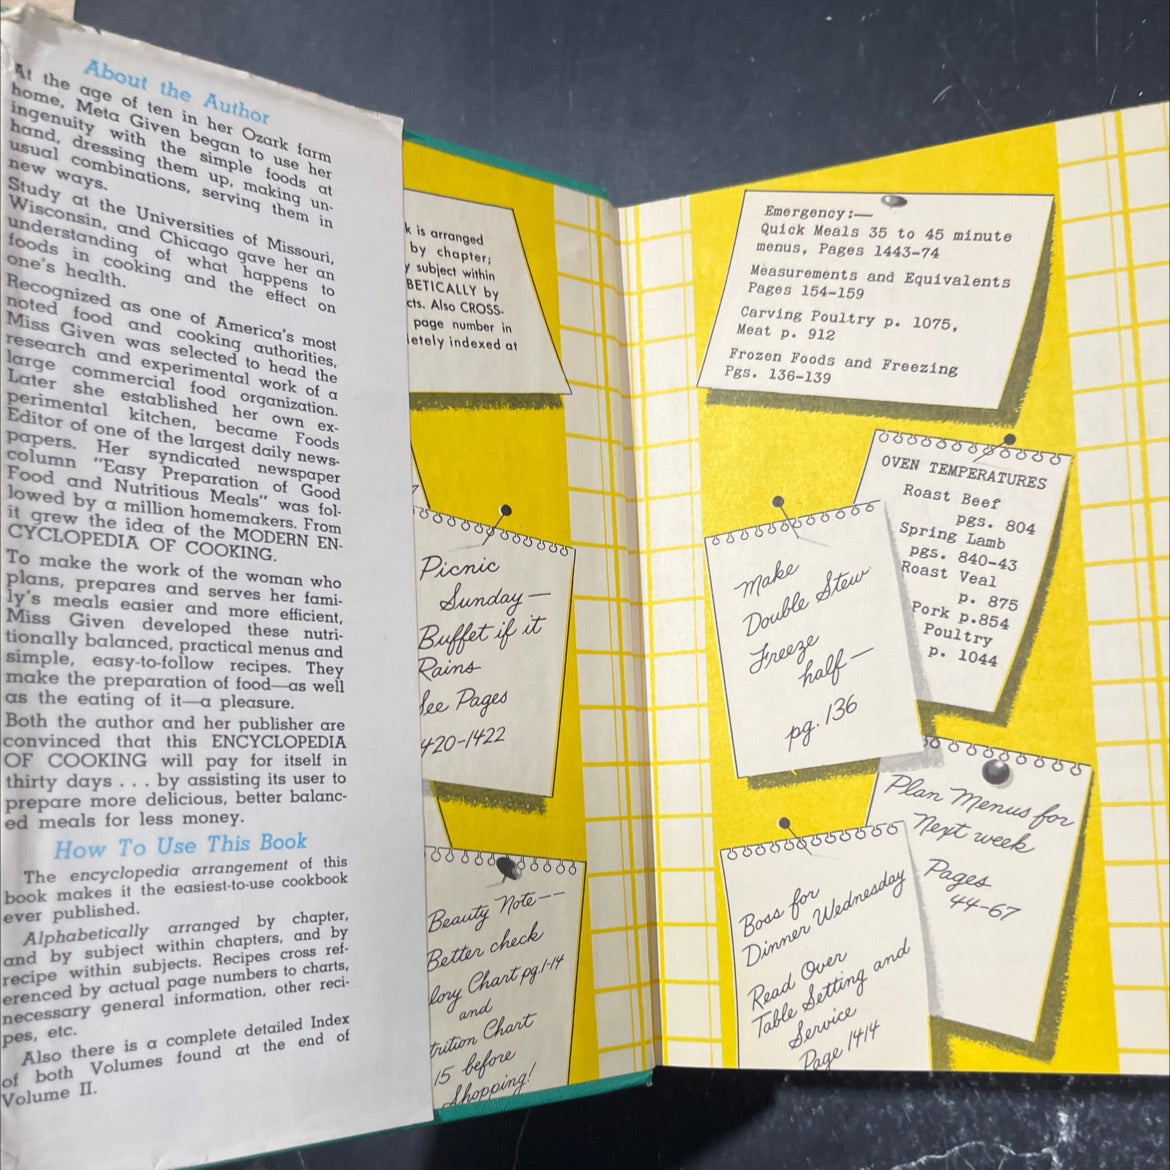 About the Author
At the age of ten in her Ozark farm
home, Meta Given began to use her
ingenuity with the simple foods at
hand, dressing them up, making un-
usual combinations, serving them in
new ways.
Study at the Universities of Missouri,
Wisconsin, and Chicago gave her an
understanding of what happens to
foods in cooking and the effect on
one's health.
Recognized as one of America's most
noted food and cooking authorities,
Miss Given was selected to head the
research and experimental work of a
large commercial food organization.
Later she established her own ex-
perimental kitchen, became Foods
Editor of one of the largest daily news-
papers. Her syndicated newspaper
column "Easy Preparation of Good
Food and Nutritious Meals" was fol-
lowed by a million homemakers. From
it grew the idea of the MODERN EN-
CYCLOPEDIA OF COOKING.
To make the work of the woman who
plans, prepares and serves her fami-
ly's meals easier and more efficient,
Miss Given developed these nutri-
tionally balanced, practical menus and
simple, easy-to-follow recipes. They
make the preparation of food—as well
as the eating of it—a pleasure.
Both the author and her publisher are
convinced that this ENCYCLOPEDIA
OF COOKING will pay for itself in
thirty days . . . by assisting its user to
prepare more delicious, better balanc-
ed meals for less money.
How To Use This Book
The encyclopedia arrangement of this
book makes it the easiest-to-use cookbook
ever published.
Alphabetically arranged by chapter,
and by subject within chapters, and by
recipe within subjects. Recipes cross ref-
erenced by actual page numbers to charts,
necessary general information, other reci-
pes, etc.
Also there is a complete detailed Index
of both Volumes found at the end of
Volume II.
k is arranged
by chapter;
y subject within
BETICALLY by
cts. Also CROSS-
page number in
letely indexed at
Picnic
Sunday —
Buffet if it
Rains
See Pages
420-1422
Beauty Note —
Better check
lory Chart pg. 1-14
and
trition Chart
15 before
Shopping!
Emergency:—
Quick Meals 35 to 45 minute
menus, Pages 1443-74
Measurements and Equivalents
Pages 154-159
Carving Poultry p. 1075,
Meat p. 912
Frozen Foods and Freezing
Pgs. 136-139
OVEN TEMPERATURES
Roast Beef
pgs. 804
Spring Lamb
pgs. 840-43
Roast Veal
p. 875
Pork p.854
Poultry
p. 1044
Make
Double Stew
Freeze
half —
pg. 136
Plan Menus for
Next week
Pages
44-67
Boss for
Dinner Wednesday
Read Over
Table Setting and
Service
Page 1414